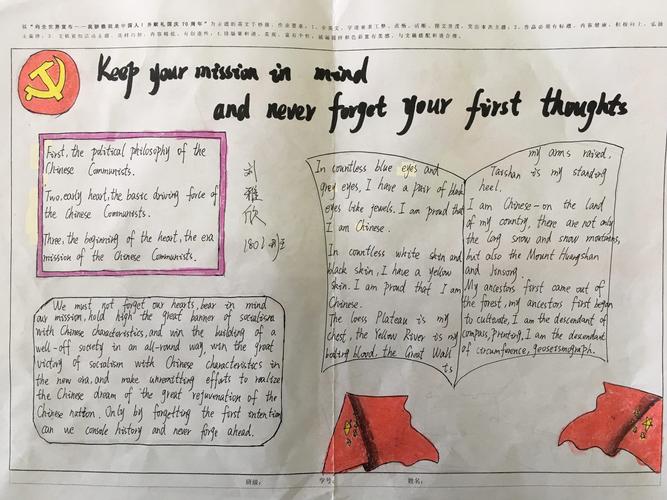 Keep your mission in mind
and never forget your first thoughts
First, the political philosophy of the
Chinese Communists.
Two, early heart, the basic driving force of
the Chinese Communists.
Three, the beginning of the heart, the era
mission of the Chinese Communists.
刘
雅
欣
1801班
We must not forget our hearts, bear in mind
our mission, hold high the great banner of socialism
with Chinese characteristics, and win the building of a
well-off society in an all-round way, win the great
victory of socialism with Chinese characteristics in
the new era, and make unremitting efforts to realize
the Chinese dream of the great rejuvenation of the
Chinese nation. Only by forgetting the first intention
can we console history and never forge ahead.
In countless blue eyes and
grey eyes, I have a pair of black
eyes like jewels. I am proud that
I am Chinese.
In countless white skin and
black skin, I have a yellow
skin. I am proud that I am
Chinese.
The loess Plateau is my
chest, the Yellow River is my
boiling blood, the Great Wall
is
my arms raised,
Taishan is my standing
heel.
I am Chinese-on the land
of my country, there are not only
the long snow and snow mountains,
but also the Mount Huangshan
and
My ancestors first came out of
the forest, my ancestors first began
to cultivate, I am the descendant of
compass, printing, I am the descendant
of circumference, geoseismograph.
班级：
学号：
姓名：